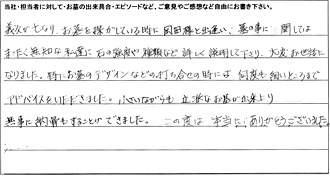 当社・担当者に対して・お墓の出来具合・エピソードなど、ご意見やご感想など自由にお書き下さい。
義父が亡くなり、お墓を探がしている時に岡田様と出逢い、墓の事に関しては
まったく無知な私達に石の強度や種類など詳しく説明して下さり、大変お世話に
なりました。特にお墓のデザインなどの打ち合せの時には何度も細いところまで
アドバイスをいただきました。小さいながらも立派なお墓が出来上り
無事に納骨もすることができました。この度は本当にありがとうございました。